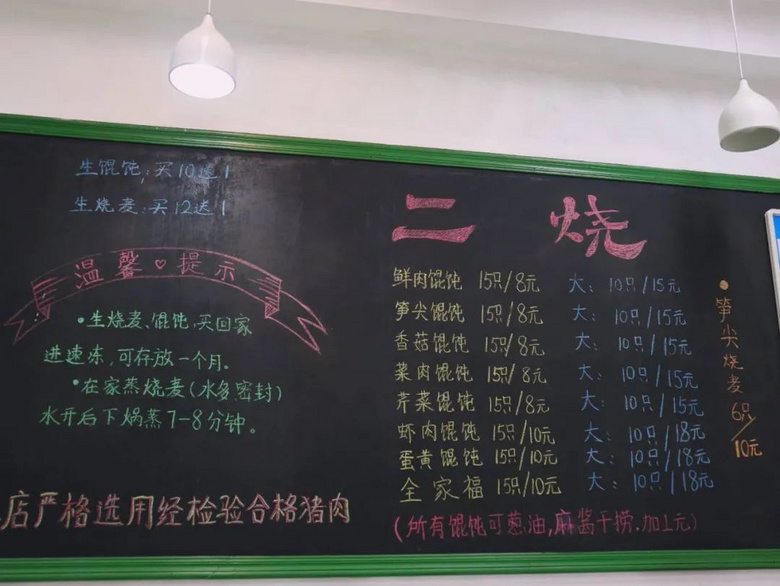 生馄饨:买10送1
生烧麦:买12送1
温馨♡提示
•生烧麦、馄饨,买回家
进速冻,可存放一个月。
•在家蒸烧麦(水多密封)
水开后下锅蒸7-8分钟。
店严格选用经检验合格猪肉
二烧
鲜肉馄饨 15只/8元 大:10只/15元
笋尖馄饨 15只/8元 大:10只/15元
香菇馄饨 15只/8元 大:10只/15元
菜肉馄饨 15只/8元 大:10只/15元
芹菜馄饨 15只/8元 大:10只/15元
虾肉馄饨 15只/10元 大:10只/18元
蛋黄馄饨 15只/10元 大:10只/18元
全家福 15只/10元 大:10只/18元
(所有馄饨可葱油,麻酱干捞.加1元)
•笋尖烧麦6只/10元